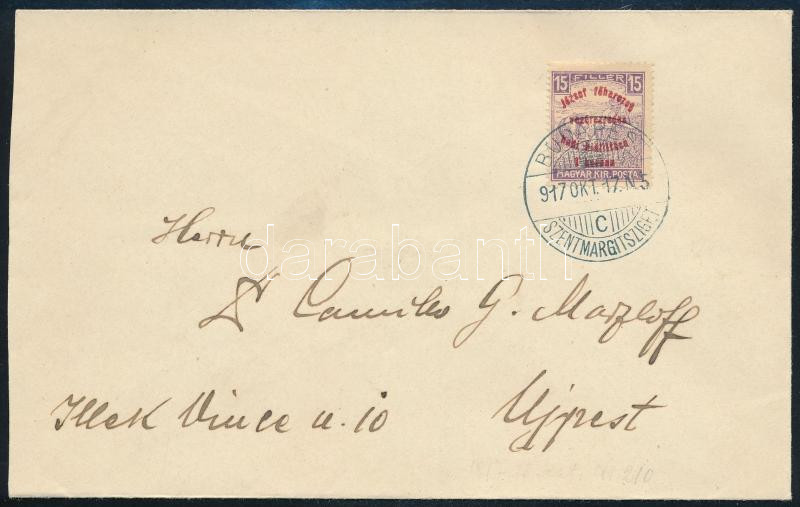 FILLÉR
15 15
József főherczeg
vezérezredes
hadi kiállítása
1 korona
MAGYAR KIR. POSTA
BUDAPEST
917 OKT. 17. N 5
C
SZENTMARGITSZIGET
darabanth
Herrn
Dr Camillo G. Marzloff
Illek Vince u. 10 Ujpest